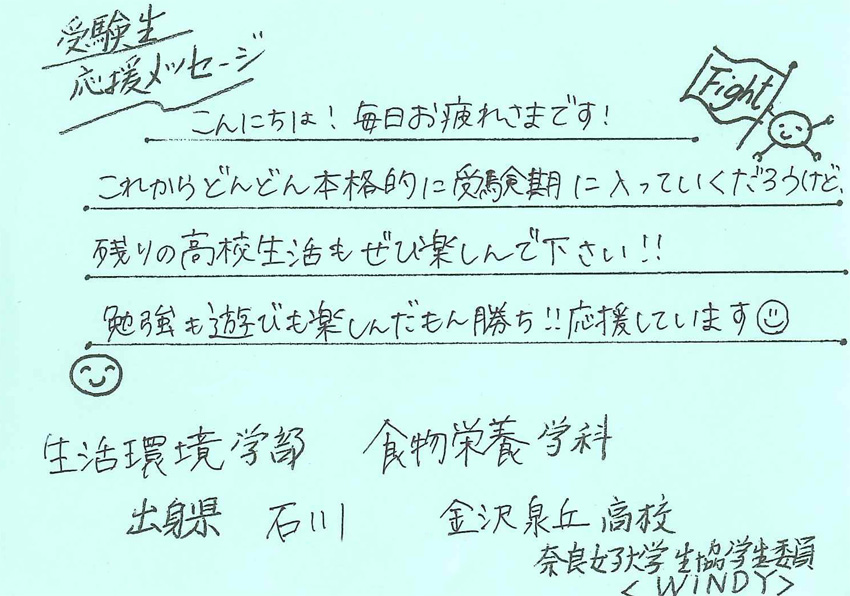 受験生
応援メッセージ
Fight
こんにちは！毎日お疲れさまです！
これからどんどん本格的に受験期に入っていくだろうけど、
残りの高校生活もぜひ楽しんで下さい！！
勉強も遊びも楽しんだもん勝ち！！応援しています
生活環境学部 食物栄養学科
出身県 石川 金沢泉丘高校
奈良女子大学生協学生委員
<WINDY>